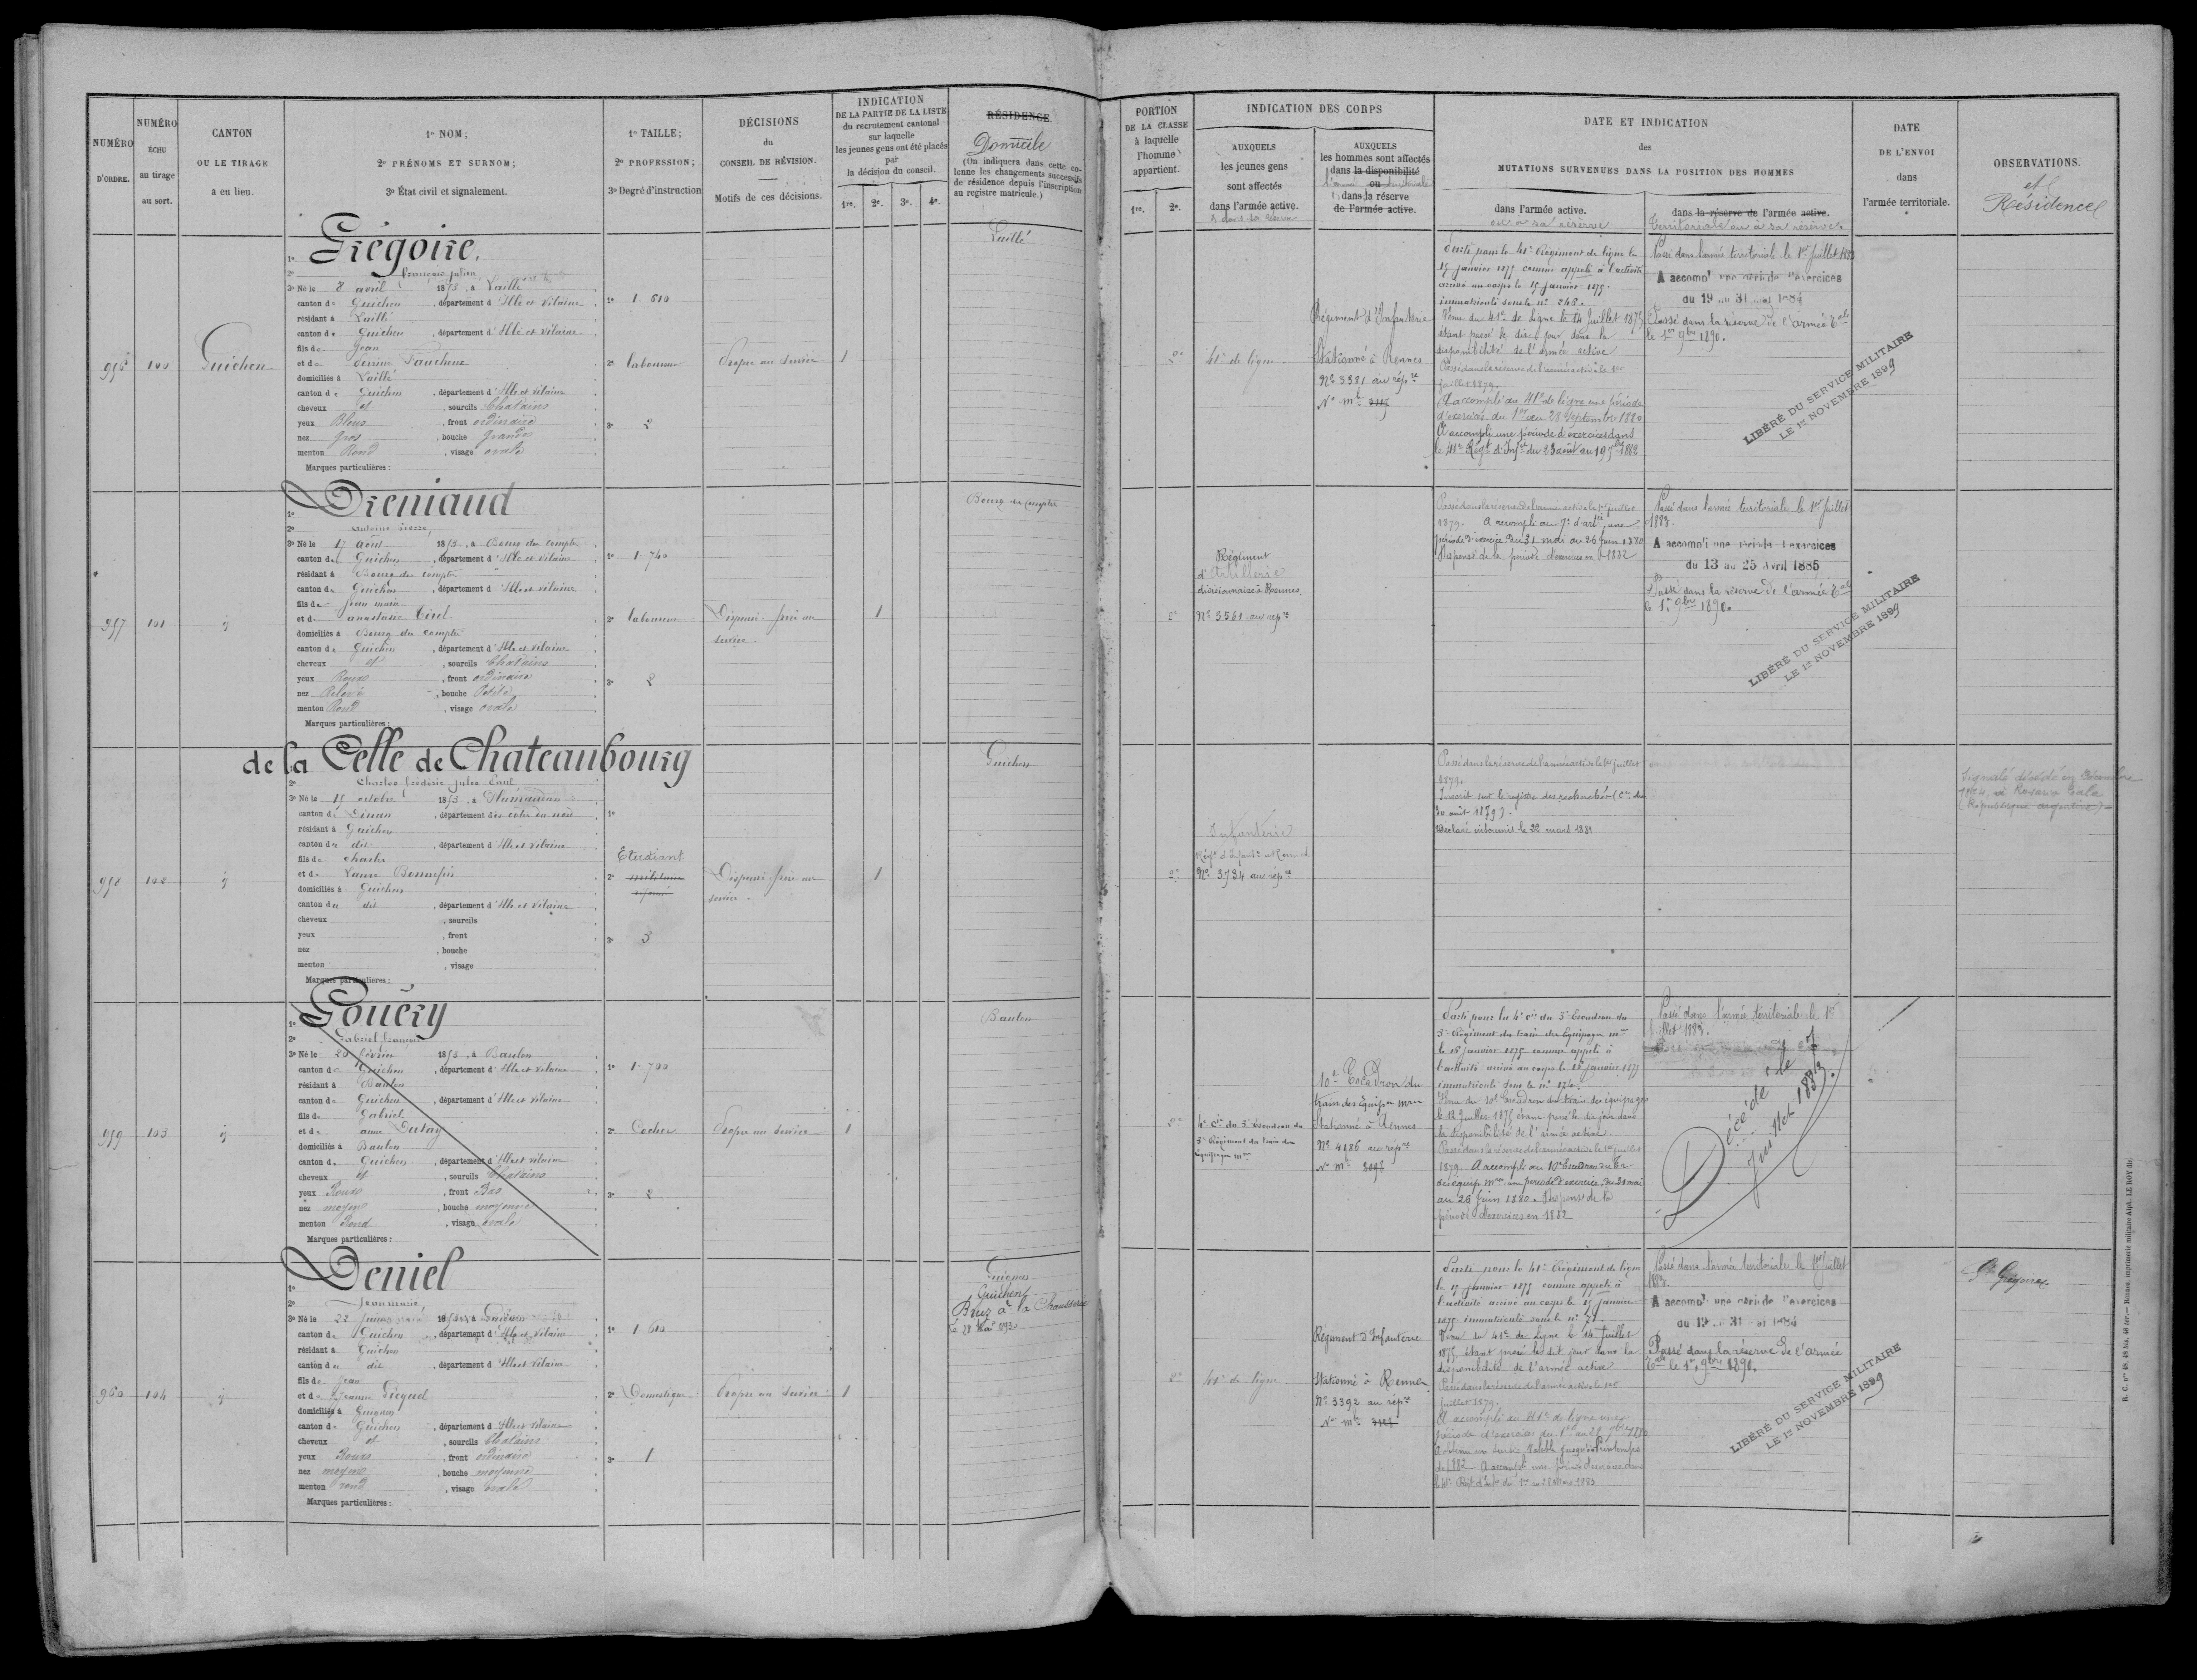 NUMÉRO D'ORDRE.
NUMÉRO ÉCHU au tirage au sort.
CANTON OU LE TIRAGE a eu lieu.
1º NOM;
2º PRÉNOMS ET SURNOM;
3º État civil et signalement.
1º TAILLE;
2º PROFESSION;
3º Degré d'instruction
DÉCISIONS
du
CONSEIL DE RÉVISION.
Motifs de ces décisions.
INDICATION
DE LA PARTIE DE LA LISTE
du recrutement cantonal
sur laquelle
les jeunes gens ont été placés
par
la décision du conseil.
1re. 2e. 3e. 4e.
RÉSIDENCE.
Domicile
(On indiquera dans cette colonne les changements successifs
de résidence depuis l'inscription
au registre matricule.)
956
100
Guichen
1º Grégoire,
2º François Julien
3º Né le 8 avril 1853, à Laillé
canton de Guichen, département d'Ille et Vilaine
résidant à Laillé
canton de Guichen, département d'Ille et Vilaine
fils de Jean
et de Faucheux
domiciliés à Laillé
canton de Guichen, département d'Ille et Vilaine
cheveux et, sourcils Chatains
yeux Bleus, front ordinaire
nez Gros, bouche Grande
menton Rond, visage ovale
Marques particulières :
1º 1. 610
2º laboureur
3º 2
Propre au service
1
Laillé
957
101
1º Dreniaud
2º Antoine Pierre
3º Né le 17 Août 1853, à Bourg des Comptes
canton de Guichen, département d'Ille et Vilaine
résidant à Bourg des comptes
canton de Guichen, département d'Ille et Vilaine
fils de Jean marie
et de anastasie Tirel
domiciliés à Bourg des comptes
canton de Guichen, département d'Ille et Vilaine
cheveux et, sourcils Chatains
yeux Roux, front ordinaire
nez Relevé, bouche Petite
menton Rond, visage ovale
Marques particulières :
1º 1. 740
2º laboureur
3º 2
Dispensé frère au
service.
1
Bourg des Comptes
958
102
de la Celle de Chateaubourg
2º Charles Frédéric Jules Paul
3º Né le 15 octobre 1853, à
canton de Dinan, département des côtes du nord
résidant à Guichen
canton du dit, département d'Ille et Vilaine
fils de Charles
et de Laure
domiciliés à Guichen
canton du dit, département d'Ille et Vilaine
cheveux, sourcils
yeux, front
nez, bouche
menton, visage
Marques particulières :
1º
Etudiant
2º militaire
réformé
3º 3
Dispensé frère au
service.
1
Guichen
959
103
1º Gouéry
2º Gabriel François
3º Né le 20 Février 1853, à Baulon
canton de Guichen, département d'Ille et Vilaine
résidant à Baulon
canton de Guichen, département d'Ille et Vilaine
fils de Gabriel
et de anne Dutay
domiciliés à Baulon
canton de Guichen, département d'Ille et Vilaine
cheveux et, sourcils Chatains
yeux Roux, front Bas
nez moyen, bouche moyenne
menton Rond, visage ovale
Marques particulières :
1º 1. 700
2º Cocher
3º 2
Propre au service
1
Baulon
960
104
1º Deniel
2º Jean marie
3º Né le 22 1853, à
canton de Guichen, département d'Ille et Vilaine
résidant à Guichen
canton du dit, département d'Ille et Vilaine
fils de Jean
et de Jeanne Piequel
domiciliés à Guignen
canton de Guichen, département d'Ille et Vilaine
cheveux et, sourcils Chatains
yeux Roux, front ordinaire
nez moyen, bouche moyenne
menton rond, visage ovale
Marques particulières :
1º 1. 610
2º Domestique
3º 1
Propre au service
1
Guignen
Guichen
Bruz à la Chaussairie
PORTION
DE LA CLASSE
à laquelle
l'homme
appartient.
1re. 2e.
INDICATION DES CORPS
AUXQUELS
les jeunes gens
sont affectés
dans l'armée active.
& dans sa réserve
AUXQUELS
les hommes sont affectés
dans la disponibilité
l'armée ou territoriale
dans la réserve
de l'armée active.
DATE ET INDICATION
des
MUTATIONS SURVENUES DANS LA POSITION DES HOMMES
dans l'armée active.
ou à sa réserve
dans la réserve de l'armée active.
territoriale ou à sa réserve.
DATE
DE L'ENVOI
dans
l'armée territoriale.
OBSERVATIONS.
et
Résidences
2e
41e de ligne
Régiment d'Infanterie
Stationné à Rennes
Nº 3381 au rép.re
Nº m.le
Parti pour le 41e Régiment de ligne le
15 janvier 1875 comme appelé à l'activité
arrivé au corps le 15 janvier 1875.
immatriculé sous le nº 246.
Venu du 41e de Ligne le 14 Juillet 1875
étant passé le dit jour dans la
disponibilité de l'armée active
Passé dans la réserve de l'armée active le 1er
juillet 1879.
A accompli au 41e de ligne une période
d'exercice du 1er au 28 Septembre 1880
A accompli une période d'exercices dans
le 41e Régt d'Infie du 23 août au 19 7bre 1882
Passé dans l'armée territoriale le 1er Juillet 1883
A accompli une période d'exercices
du 19 au 31 mai 1884
Passé dans la réserve de l'armée Tale
le 1er 9bre 1890.
LIBÉRÉ DU SERVICE MILITAIRE
LE 1er NOVEMBRE 1899
2e
Régiment
d'Artillerie
divisionnaire à Rennes.
Nº 3561 au rép.re
Passé dans la réserve de l'armée active le 1er juillet
1879. A accompli au 7e d'artie une
période d'exercice du 31 mai au 26 Juin 1880
Dispensé de la période d'exercices en 1882
Passé dans l'armée territoriale le 1er Juillet
1883.
A accompli une période d'exercices
du 13 au 25 Avril 1885
Passé dans la réserve de l'armée Tale
le 1er 9bre 1890.
LIBÉRÉ DU SERVICE MILITAIRE
LE 1er NOVEMBRE 1899
2e
Infanterie
Régt d'Infantie à Rennes
Nº 3734 au rép.re
Passé dans la réserve de l'armée active le 1er juillet
1879.
Inscrit sur le registre des recherches (Cre du
30 août 1879).
Déclaré insoumis le 22 mars 1881
Signalé décédé en Décembre
à Rosario Tala
(République argentine)
2e
4e Cie du 5e Escadron du
5e Régiment du train des
Equipages mres
10e Escadron du
train des équipes mres
Stationné à Rennes
Nº 4186 au rép.re
Nº m.le
Parti pour la 4e Cie du 5e Escadron du
5e Régiment du train des Equipages mres
le 16 janvier 1875 comme appelé à
l'activité arrivé au corps le 16 janvier 1875
immatriculé sous le nº 174.
Venu du 10e Escadron du train des équipages
le 12 Juillet 1875 étant passé le dit jour dans
la disponibilité de l'armée active
Passé dans la réserve de l'armée active le 1er juillet
1879. A accompli au 10e Escadron du Tr.
des équip. mres une période d'exercice du 31 mai
au 26 Juin 1880. Dispensé de la
période d'exercices en 1882
Passé dans l'armée territoriale le 1er
Juillet 1883.
Décédé le 7
Juillet 1883.
2e
41e de ligne
Régiment d'Infanterie
Stationné à Rennes.
Nº 3392 au rép.re
Nº m.le
Parti pour le 41e Régiment de ligne
le 15 janvier 1875 comme appelé à
l'activité arrivé au corps le 15 janvier
1875 immatriculé sous le nº 71.
Venu du 41e de Ligne le 14 Juillet
1875 étant passé le dit jour dans la
disponibilité de l'armée active
Passé dans la réserve de l'armée active le 1er
juillet 1879.
A accompli au 41e de ligne une
période d'exercices du 1er au 28 7bre 1880
de 1882. A accompli une période d'exercices dans
Passé dans l'armée territoriale le 1er Juillet
1883.
A accompli une période d'exercices
du 19 au 31 mai 1884
Passé dans la réserve de l'armée
Tale le 1er 9bre 1890.
LIBÉRÉ DU SERVICE MILITAIRE
LE 1er NOVEMBRE 1899
St Grégoire
Rennes, imprimerie militaire Alph. LE ROY fils.